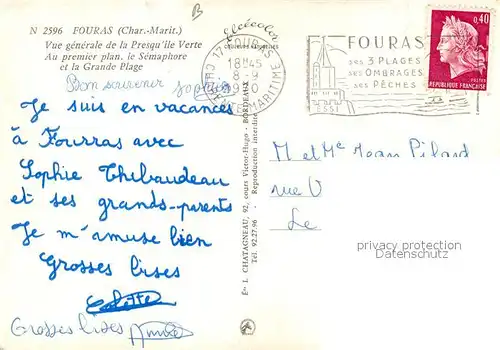 N 2596 FOURAS (Char.-Marit.)
Vue générale de la Presqu'île Verte
Au premier plan, le Sémaphore
et la Grande Plage
Bon souvenir Sophie
Je suis en vacances
à Fourras avec
Sophie Thibaudeau
et ses grands-parents
Je m'amuse bien
Grosses bises
Colette
Grosses bises
Éts L. CHATAGNEAU, 92, cours Victor-Hugo - BORDEAUX
Tél. 92.27.96 - Reproduction interdite
17 FOURAS
18H45
8-9
1970
CHARENTE-MARITIME
FOURAS
SES 3 PLAGES
SES OMBRAGES
SES PÊCHES
0,40
POSTES
REPUBLIQUE FRANÇAISE
M et Me Jean Pilard
rue V
Le
privacy protection
Datenschutz